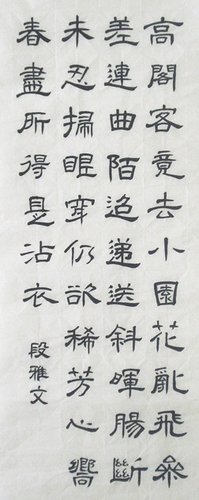 高閣客竟去小園花亂飛參
差連曲陌迢遞送斜暉腸斷
未忍掃眼穿仍欲稀芳心嚮
春盡所得是沾衣
段雅文